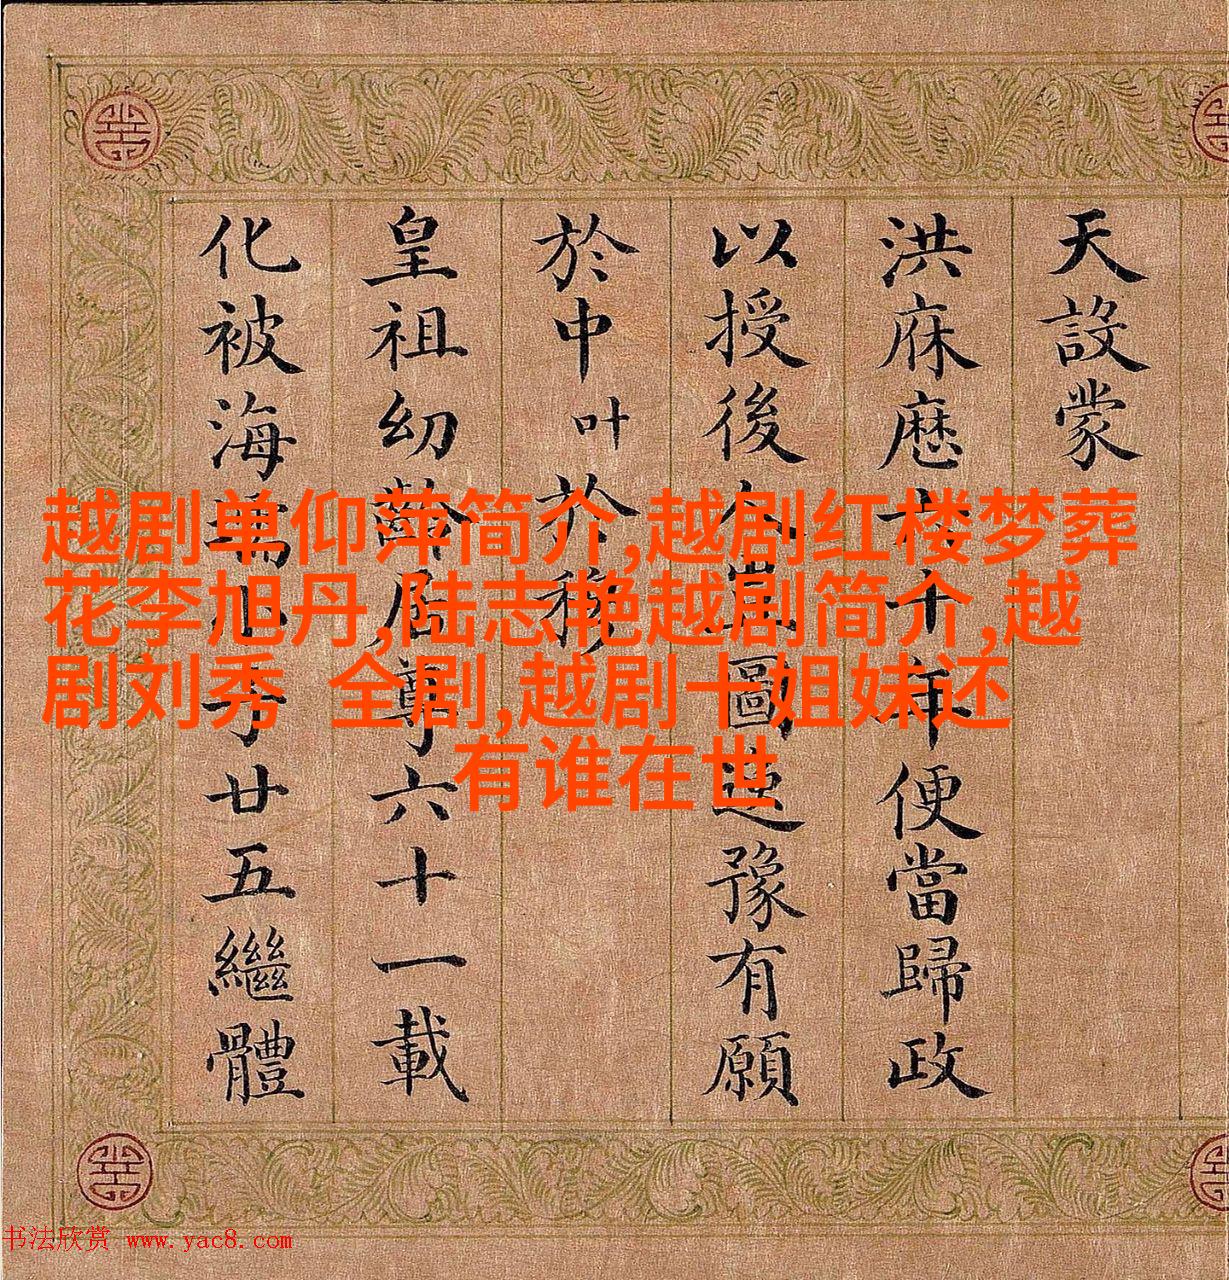 越剧单仰萍简介,越剧红楼梦葬
花李旭丹,陆志艳越剧简介,越
剧刘秀 全剧,越剧十姐妹还
有谁在世
天設蒙
洪庥歷六十年便當歸政
以授後圖豫有願
於中叶於穆
皇祖幼齡居尊六十一載
化被海予廿五繼體
书法欣赏 www.yac8.com